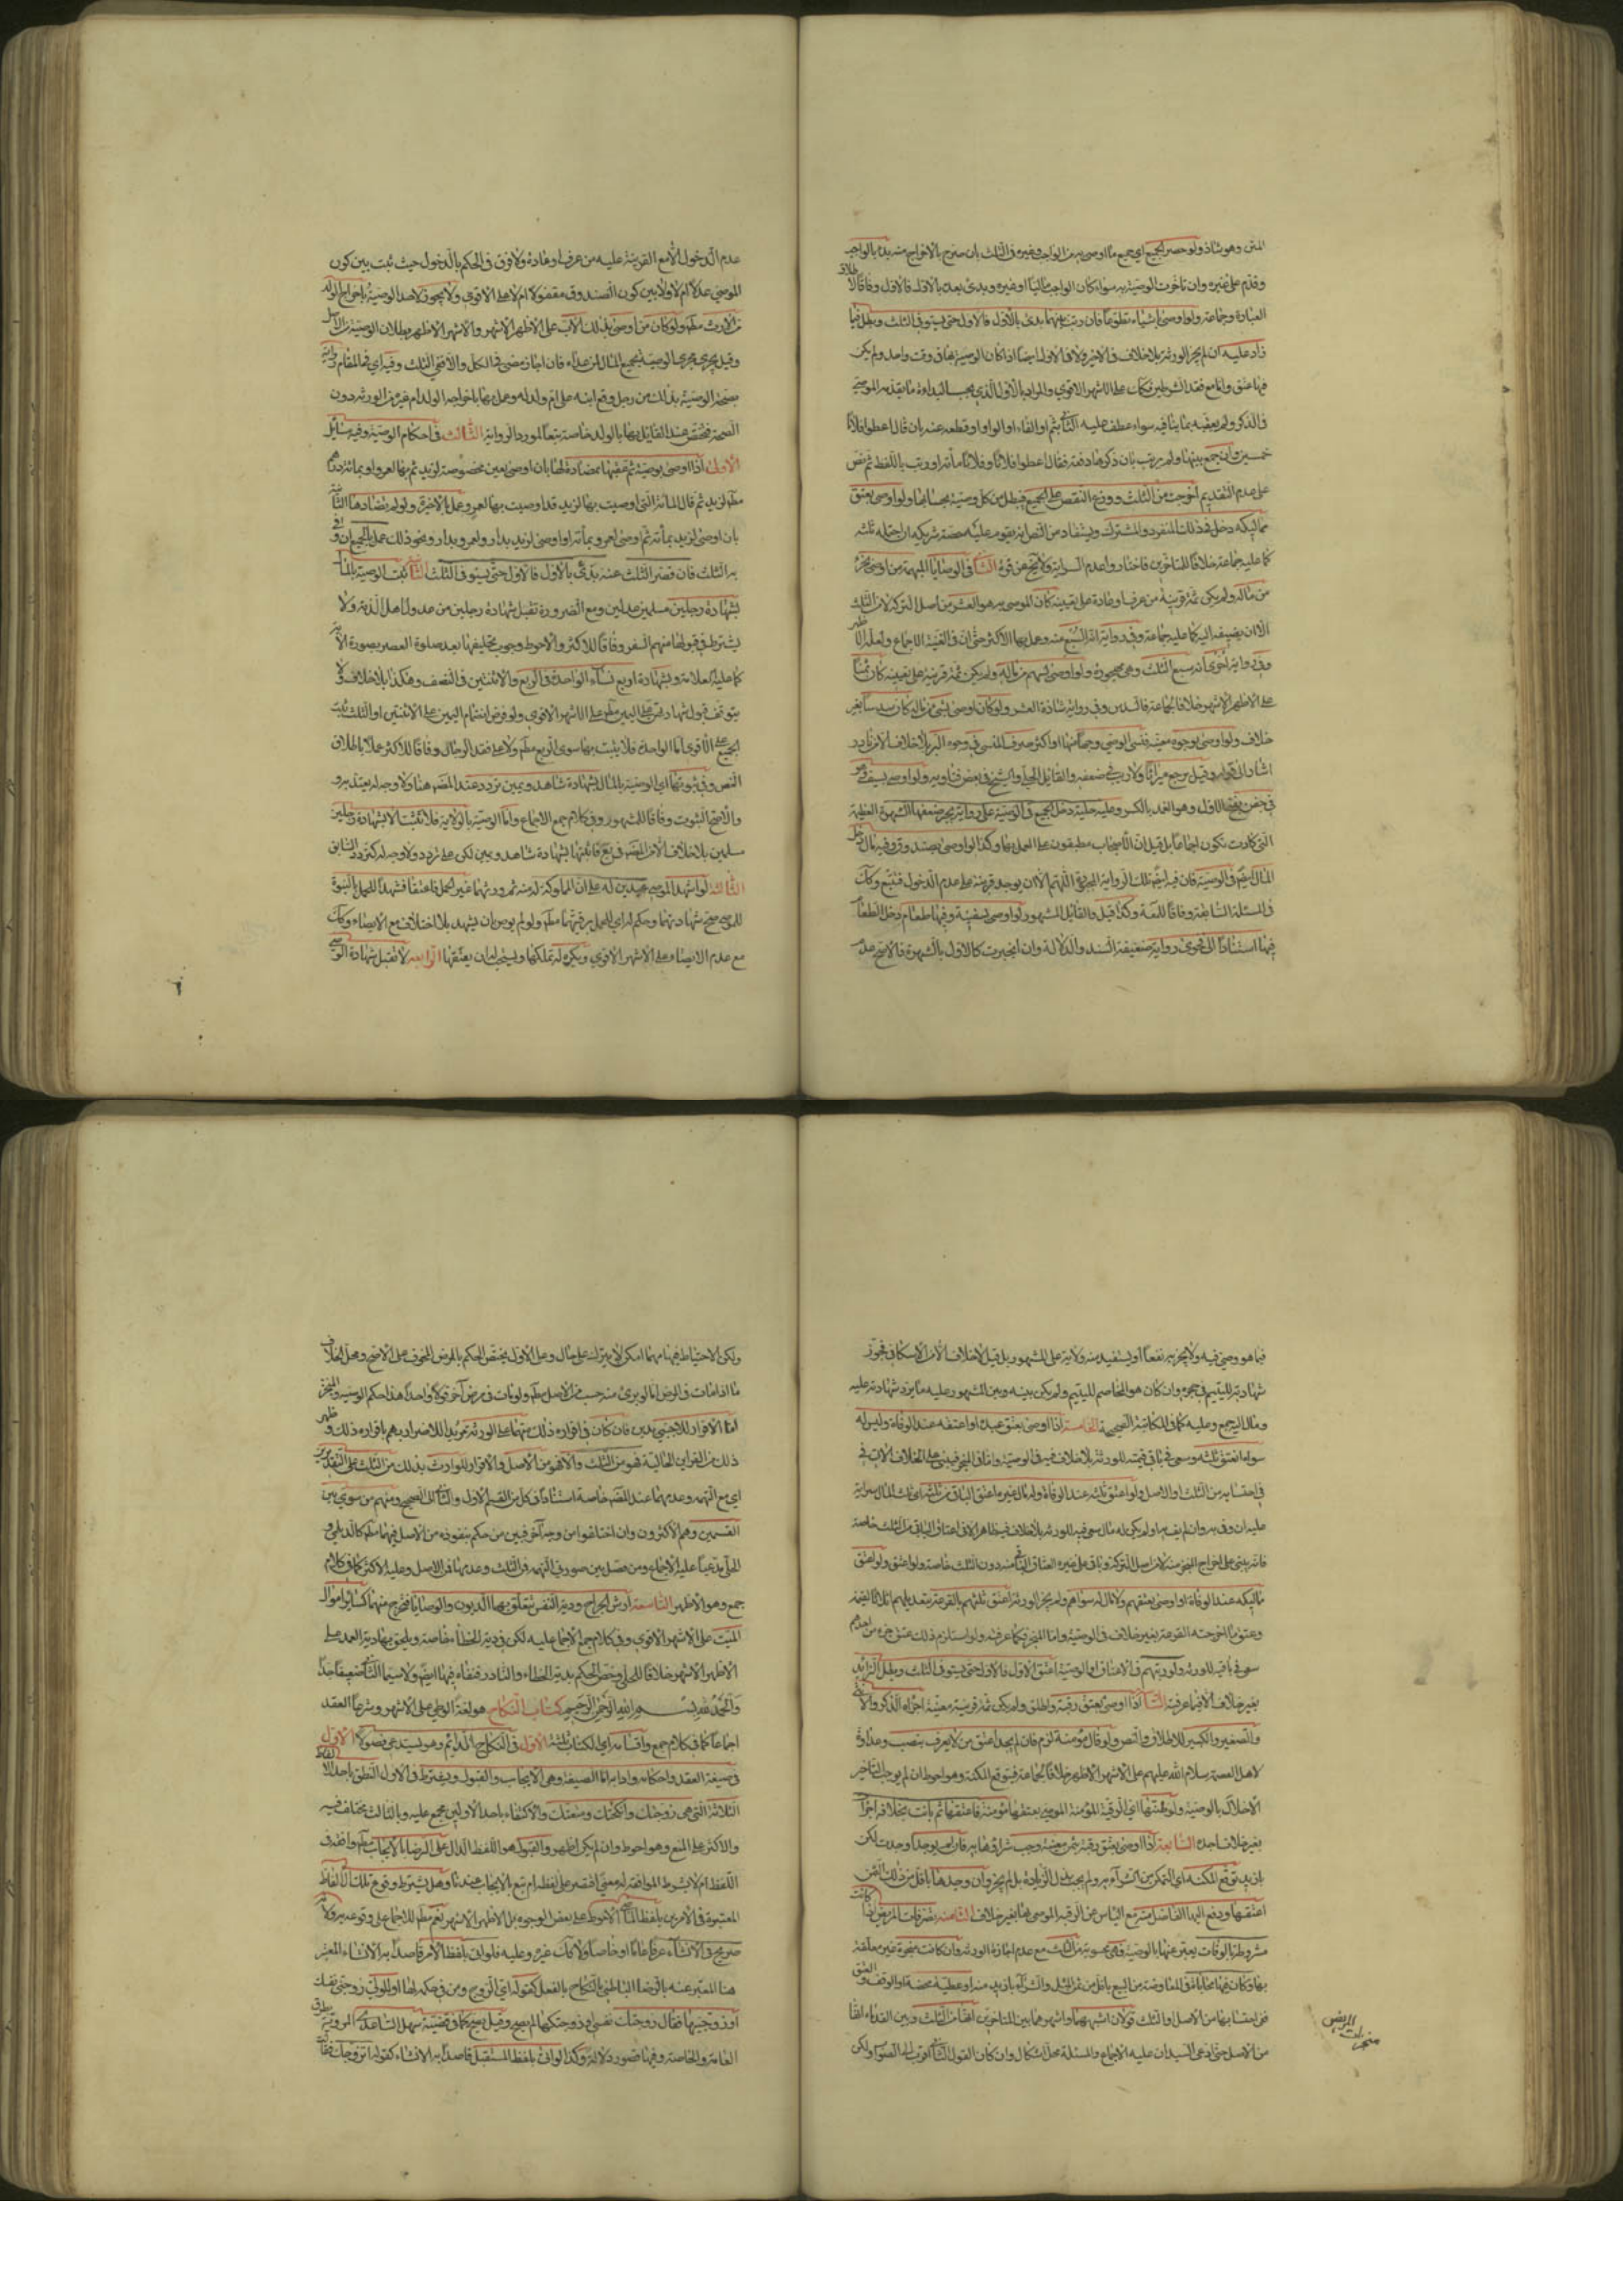 المتن وهو شاذ ولو حصر الجميع اي جميع ما اوصى به من الواجب وغيره في الثلث بان صرح بالاخراج منه بدء بالواجب
وقدم على غيره وان تأخرت الوصية به سواء كان الواجب ماليا او غيره وبدئ بعده بالاول فالاول وفاقا لاطلاق
العبادة وجماعة ولو اوصى باشياء تطوعا فان رتب بينها بدئ بالاول فالاول حتى يستوفي الثلث وبطل فيما
زاد عليه ان لم يجز الورثة بلا خلاف في الاخير ولا في الاول ايضا اذا كان الوصية بها في وقت واحد ولم يكن
فيها عتق واما مع فقد الشرطين فكذلك على الاشهر الاقوى والمراد بالاول الذي يجب البدأة ما يقدمه الموصي
في الذكر ولم يعقبه بما ينافيه سواء عطف عليه الثاني بثم او الفاء او الواو او قطعه عنه بان قال اعطوا فلانا
خمسين وان جمع بينها ولم يرتب بان ذكرها دفعة فقال اعطوا فلانا وفلانا مائة او رتب باللفظ ثم نص
على عدم التقديم اخرجت من الثلث ووزع النقص على الجميع فيبطل من كل وصية بحسابها ولو اوصى بعتق
مماليكه دخل في ذلك المنفرد والمشترك ويستفاد من النص انه يقوم عليه حصة شريكه ان احتمله ثلثه
كما عليه جماعة خلافا للمتأخرين فاختاروا عدم السراية ولا يخ عن قوة الثاني في الوصايا المبهمة من اوصى بجزء
من ماله ولم يكن ثمة قرينة من عرف او عادة على تعيينه كان الموصى به هو العشر من اصل التركة لا من الثلث
الا ان يضيفه اليه كما عليه جماعة وفي رواية انه السبع منه وعمل بها الاكثر حتى ان في الغنية الاجماع ولعله الاظهر
وفي رواية اخرى انه سبع الثلث وهي مهجورة ولو اوصى بسهم من ماله ولم يكن ثمة قرينة على تعيينه كان ثمنا
على الاظهر الاشهر خلافا لجماعة فالسدس وفي رواية شاذة العشر ولو كان اوصى بشيء من ماله كان سدسا بغير
خلاف ولو اوصى بوجوه معينة فنسي الوصي وجها منها او اكثر صرف المنسي في وجوه البر بلا خلاف الا من نادر
اشار الى قوله وقيل يرجع ميراثا ولا ريب في ضعفه والقائل الحلي والشيخ في بعض فتاويه ولو اوصى بسيف وهو
في جفن بفتح الاول وهو الغمد بالكسر وعليه حلية دخل الجميع في الوصية على رواية يجبر ضعفها الشهرة العظيمة
التي كادت تكون اجماعا بل قيل ان الاصحاب مطبقون على العمل بها وكذا لو اوصى بصندوق وفيه مال دخل
المال ايضا في الوصية فان فيه ايضا تلك الرواية المجبورة اللهم الا ان يوجد قرينة على عدم الدخول فتتبع وكذا
في المسئلة السابقة وفاقا للمعة وكذا قيل والقائل المشهور لو اوصى بسفينة وفيها طعام دخل الطعام
فيها استنادا الى فحوى رواية ضعيفة السند والدلالة وان انجبرت كالاول بالشهرة فالاصح عدم
عدم الدخول الا مع القرينة عليه من عرف او عادة ولا فرق في الحكم بالدخول حيث ثبت بين كون
الموصي عدلا ام لا ولا بين كون الصندوق مقفولا ام لا على الاقوى ولا يجوز لاحد الوصية باخراج الولد
من الارث مطلقا ولو كان من اوصى بذلك الاب على الاظهر الاشهر والاشهر الاظهر بطلان الوصية من الاصل
وقيل يجري مجرى الوصية بجميع المال لمن عداه فان اجاز مضى في الكل والا ففي الثلث وفيه اي في المقام رواية
بصحة الوصية بذلك من رجل وقع ابنه على ام ولد له وعمل بها باخراجه الولد ام غيره من الورثة دون
الصحة فتختص عند القائل بها بالولد خاصة تبعا لمورد الرواية الثالث في احكام الوصية وفيه مسائل
الاولى اذا اوصى بوصية ثم عقبها بمضادة لها بان اوصى بعين مخصوصة لزيد ثم بها لعمرو او بمائة درهم
مطلقا لزيد ثم قال المائة التي اوصيت بها لزيد قد اوصيت بها لعمرو عمل بالاخيرة ولو لم يضادها الثانية
بان اوصى لزيد بمائة ثم اوصى لعمرو بمائة او اوصى لزيد بدار ولعمرو بدار ونحو ذلك عمل بالجميع ان وفى
به الثلث فان قصر الثلث عنه بدئ بالاول فالاول حتى يستوفي الثلث الثانية تثبت الوصية بالمال
بشهادة رجلين مسلمين عدلين ومع الضرورة تقبل شهادة رجلين من عدول اهل الذمة ولا
يشترط في قبولها منهم السفر وفاقا للاكثر والاحوط وجوب تحليفهما بعد صلوة العصر بصورة الاية
كما عليه العلامة وبشهادة اربع نساء الواحدة في الربع والاثنتين في النصف وهكذا بلا خلاف ولا
يتوقف قبول شهادتهن على اليمين مطلقا على الاشهر الاقوى ولو فرض انضمام اليمين على الاثنتين او الثلث ثبت
الجميع على الاقوى اما الواحدة فلا يثبت بها سوى الربع مطلقا ولا على فقد الرجال وفاقا للاكثر عملا باطلاق
النص وفي ثبوتها اي الوصية بالمال بشهادة شاهد ويمين تردد عند المصنف هنا ولا وجه له يعتد به
والاصح الثبوت وفاقا للمشهور وفي كلام جمع الاجماع واما الوصية بالولاية فلا تثبت الا بشهادة رجلين
مسلمين بلا خلاف الا من المصنف في يع فاثبتها بشهادة شاهد ويمين لكن على تردد ولا وجه له كتردده السابق
الثالثة لو اشهد الموصي عبدين له على ان المملوكة له منه ثم ورثهما غير الحمل فاعتقا فشهدا للحمل بالبنوة
للموصي صح شهادتهما وحكم له اي للحمل برقيتهما مطلقا ولو لم يوص بان يشهد بلا خلاف مع الايصاء وكذا
مع عدم الايصاء على الاشهر الاقوى ويكره له تملكهما ويستحب له ان يعتقهما الرابعة لا تقبل شهادة الوصي
فيما هو وصي فيه ولا يجر به نفعا او يستفيد منه ولاية على المشهور بل قيل لا خلاف الا من الاسكافي فجوز
شهادته لليتيم في حجره وان كان هو المخاصم لليتيم ولم يكن بينه وبين المشهود عليه ما يرد شهادته عليه
ومال اليه جمع وعليه كما في المكاتبة الصحيحة الخامسة اذا اوصى بعتق عبده او اعتقه عند الوفاة وليس له
سواه انعتق ثلثه وسعى في باقي قيمته للورثة بلا خلاف فيه في الوصية واما في المنجز فيبنى على الخلاف الاتي في
في احتسابه من الثلث او الاصل ولو اعتق ثلثه عند الوفاة وله مال غيره اعتق الباقي من ثلثه اي ثلث المال سراية
عليه ان وفى به وان لم يف به او لم يكن له مال سعى فيه للورثة بلا خلاف فيه ظاهر الا في اعتاق الباقي من الثلث خاصة
فانه يبنى على اخراج المنجز منه لا من اصل التركة وباقي على غيره العتاق الباقي منه دون الثلث خاصة ولو اعتق
مماليكه عند الوفاة او اوصى بعتقهم ولا مال له سواهم ولم يجز الورثة اعتق ثلثهم بالقرعة بتعديلهم اثلاثا بالقيمة
وعتق ما اخرجته القرعة بغير خلاف في الوصية واما المنجز فكما عرفته ولو استلزم ذلك عتق جزء من احدهم
سعى في باقيه للورثة ولو رتبهم في الاعتاق او الوصية اعتق الاول فالاول حتى يستوفي الثلث ويبطل الزائد
بغير خلاف الا فيما عرفته السادسة اذا اوصى بعتق رقبة واطلق ولم يكن ثمة قرينة معينة اجزاه الذكر والانثى
والصغير والكبير للاطلاق والنص ولو قال مؤمنة لزم فان لم يجد اعتق من لا يعرف بنصب وعداوة
لاهل العصمة سلام الله عليهم على الاشهر الاظهر خلافا لجماعة فيتوقع المكنة وهو احوط ان لم يوجب التأخير
الاخلال بالوصية ولو ظنها اي الرقبة المؤمنة الموصى بعتقها مؤمنة فاعتقها ثم بانت بخلافه اجزأ
بغير خلاف اجده السابعة اذا اوصى بعتق رقبة بثمن معين وجب شرائها به فان لم يوجد او وجدت لكن
بازيد توقع المكنة اي التمكن من الشراء به ولم يجب بذل الزيادة بل لم يجز وان وجدها باقل من ذلك الثمن
اعتقها ودفع اليها الفاضل منه مع اليأس عن الرقبة الموصى بها بغير خلاف الثامنة تصرفات المريض اذا كانت
مشروطة بالوفات يعبر عنها بالوصية وهي محسوبة من الثلث مع عدم اجازة الورثة وان كانت منجزة غير معلقة
بها وكان فيها محاباة في المعاوضة من البيع باقل من ثمن المثل والشراء بازيد منه او عطية محضة او الوقف والعتق
ففي احتسابها من الاصل او الثلث قولان اشهرهما واشهرهما بين المتأخرين انها من الثلث وبين القدماء انها
من الاصل حتى ادعى السيدان عليه الاجماع والمسئلة محل اشكال وان كان القول الثاني اقرب الى الصواب ولكن
منجزات المريض
ولكن الاحتياط فيها مهما امكن لا يترك على حال وعلى الاول يختص الحكم بالمرض المخوف على الاصح ومحل الخلاف
ما اذا مات في المرض اما لو برئ منه حسب من الاصل مطلقا ولو مات في مرض آخر قولا واحدا هذا حكم الوصية والمنجز
اما الاقرار للاجنبي بدين فان كان في اقراره ذلك متهما على الورثة مريدا للاضرار بهم باقراره ذلك وظهر
ذلك من القراين الحالية فهو من الثلث والا فهو من الاصل والاقرار للوارث بذلك من الثلث على التقديرين
اي مع التهمة وعدمها عند المصنف خاصة استنادا في كل من القسم الاول والثاني الى الصحيح ومنهم من سوى بين
القسمين وهم الاكثرون وان اختلفوا من وجه آخر فبين من حكم بنفوذه من الاصل فيهما مطلقا كالديلمي و
الحلي مدعيا عليه الاجماع ومن فصل بين صورتي التهمة فمن الثلث وعدمها فمن الاصل وعليه الاكثر كما في كلام
جمع وهو الاظهر التاسعة ارش الجراح ودية النفس تتعلق بهما الديون والوصايا فتخرج منهما كسائر اموال
الميت على الاشهر الاقوى وفي كلام جمع الاجماع عليه لكن في دية الخطأ خاصة ويلحق بها دية العمد على
الاظهر الاشهر خلافا للحلي وخص الحكم بدية الخطاء والنادر فنفاه فيهما ايضا ولا سيما الثاني ضعيف جدا
والحمد لله بسم الله الرحمن الرحيم كتاب النكاح هو لغة الوطي على الاشهر وشرعا العقد
اجماعا كما في كلام جمع واقسامه اي الكتاب ثلثة الاول في النكاح الدائم وهو يستدعي فصولا الاول
في صيغة العقد واحكامه وادابه اما الصيغة وهي الايجاب والقبول ويشترط في الاول النطق باحد الالفاظ
الثلاثة التي هي زوجتك وانكحتك ومتعتك والاكتفاء باحد الاولين مجمع عليه وبالثالث مختلف فيه
والاكثر على المنع وهو احوط وان لم يكن اظهر والقبول هو اللفظ الدال على الرضا بالايجاب مطلقا وافقه في
اللفظ ام لا بشرط الموافقة له معنى اقتصر على لفظه ام تبع بالايجاب عندنا وهل يشترط وقوع تلك الالفاظ
المعتبرة في الامرين بلفظ الماضي الاحوط على بعض الوجوه بل الاظهر الاشهر نعم مطلقا للاجماع على وقوعه به ولانه
صريح في الانشاء عرفا عاما او خاصا ولا كذلك غيره وعليه فلو اتى بلفظ الامر قاصدا به الانشاء المعتبر
هنا المعبر عنه بالرضا الباطني بالنكاح بالفعل كقوله اي الزوج ومن في حكمه لها او للولي زوجني نفسك
او زوجنيها فقال زوجتك نفسي او زوجتكها لم يصح وقيل يصح كما في قضية سهل الساعدي المروية بطرق
العامة والخاصة وفيها قصور دلالة وكذا لو اتى بلفظ المستقبل قاصدا به الانشاء كقوله اتزوجك فقالت